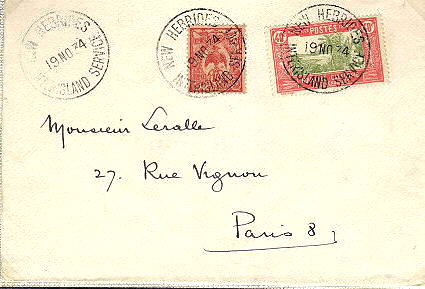 NEW HEBRIDES
19 NO 34
INTER-ISLAND SERVICE
NEW HEBRIDES
19 NO 34
INTER-ISLAND SERVICE
NEW HEBRIDES
19 NO 34
INTER-ISLAND SERVICE
POSTES
Monsieur Leralle
27. Rue Vignon
Paris 8